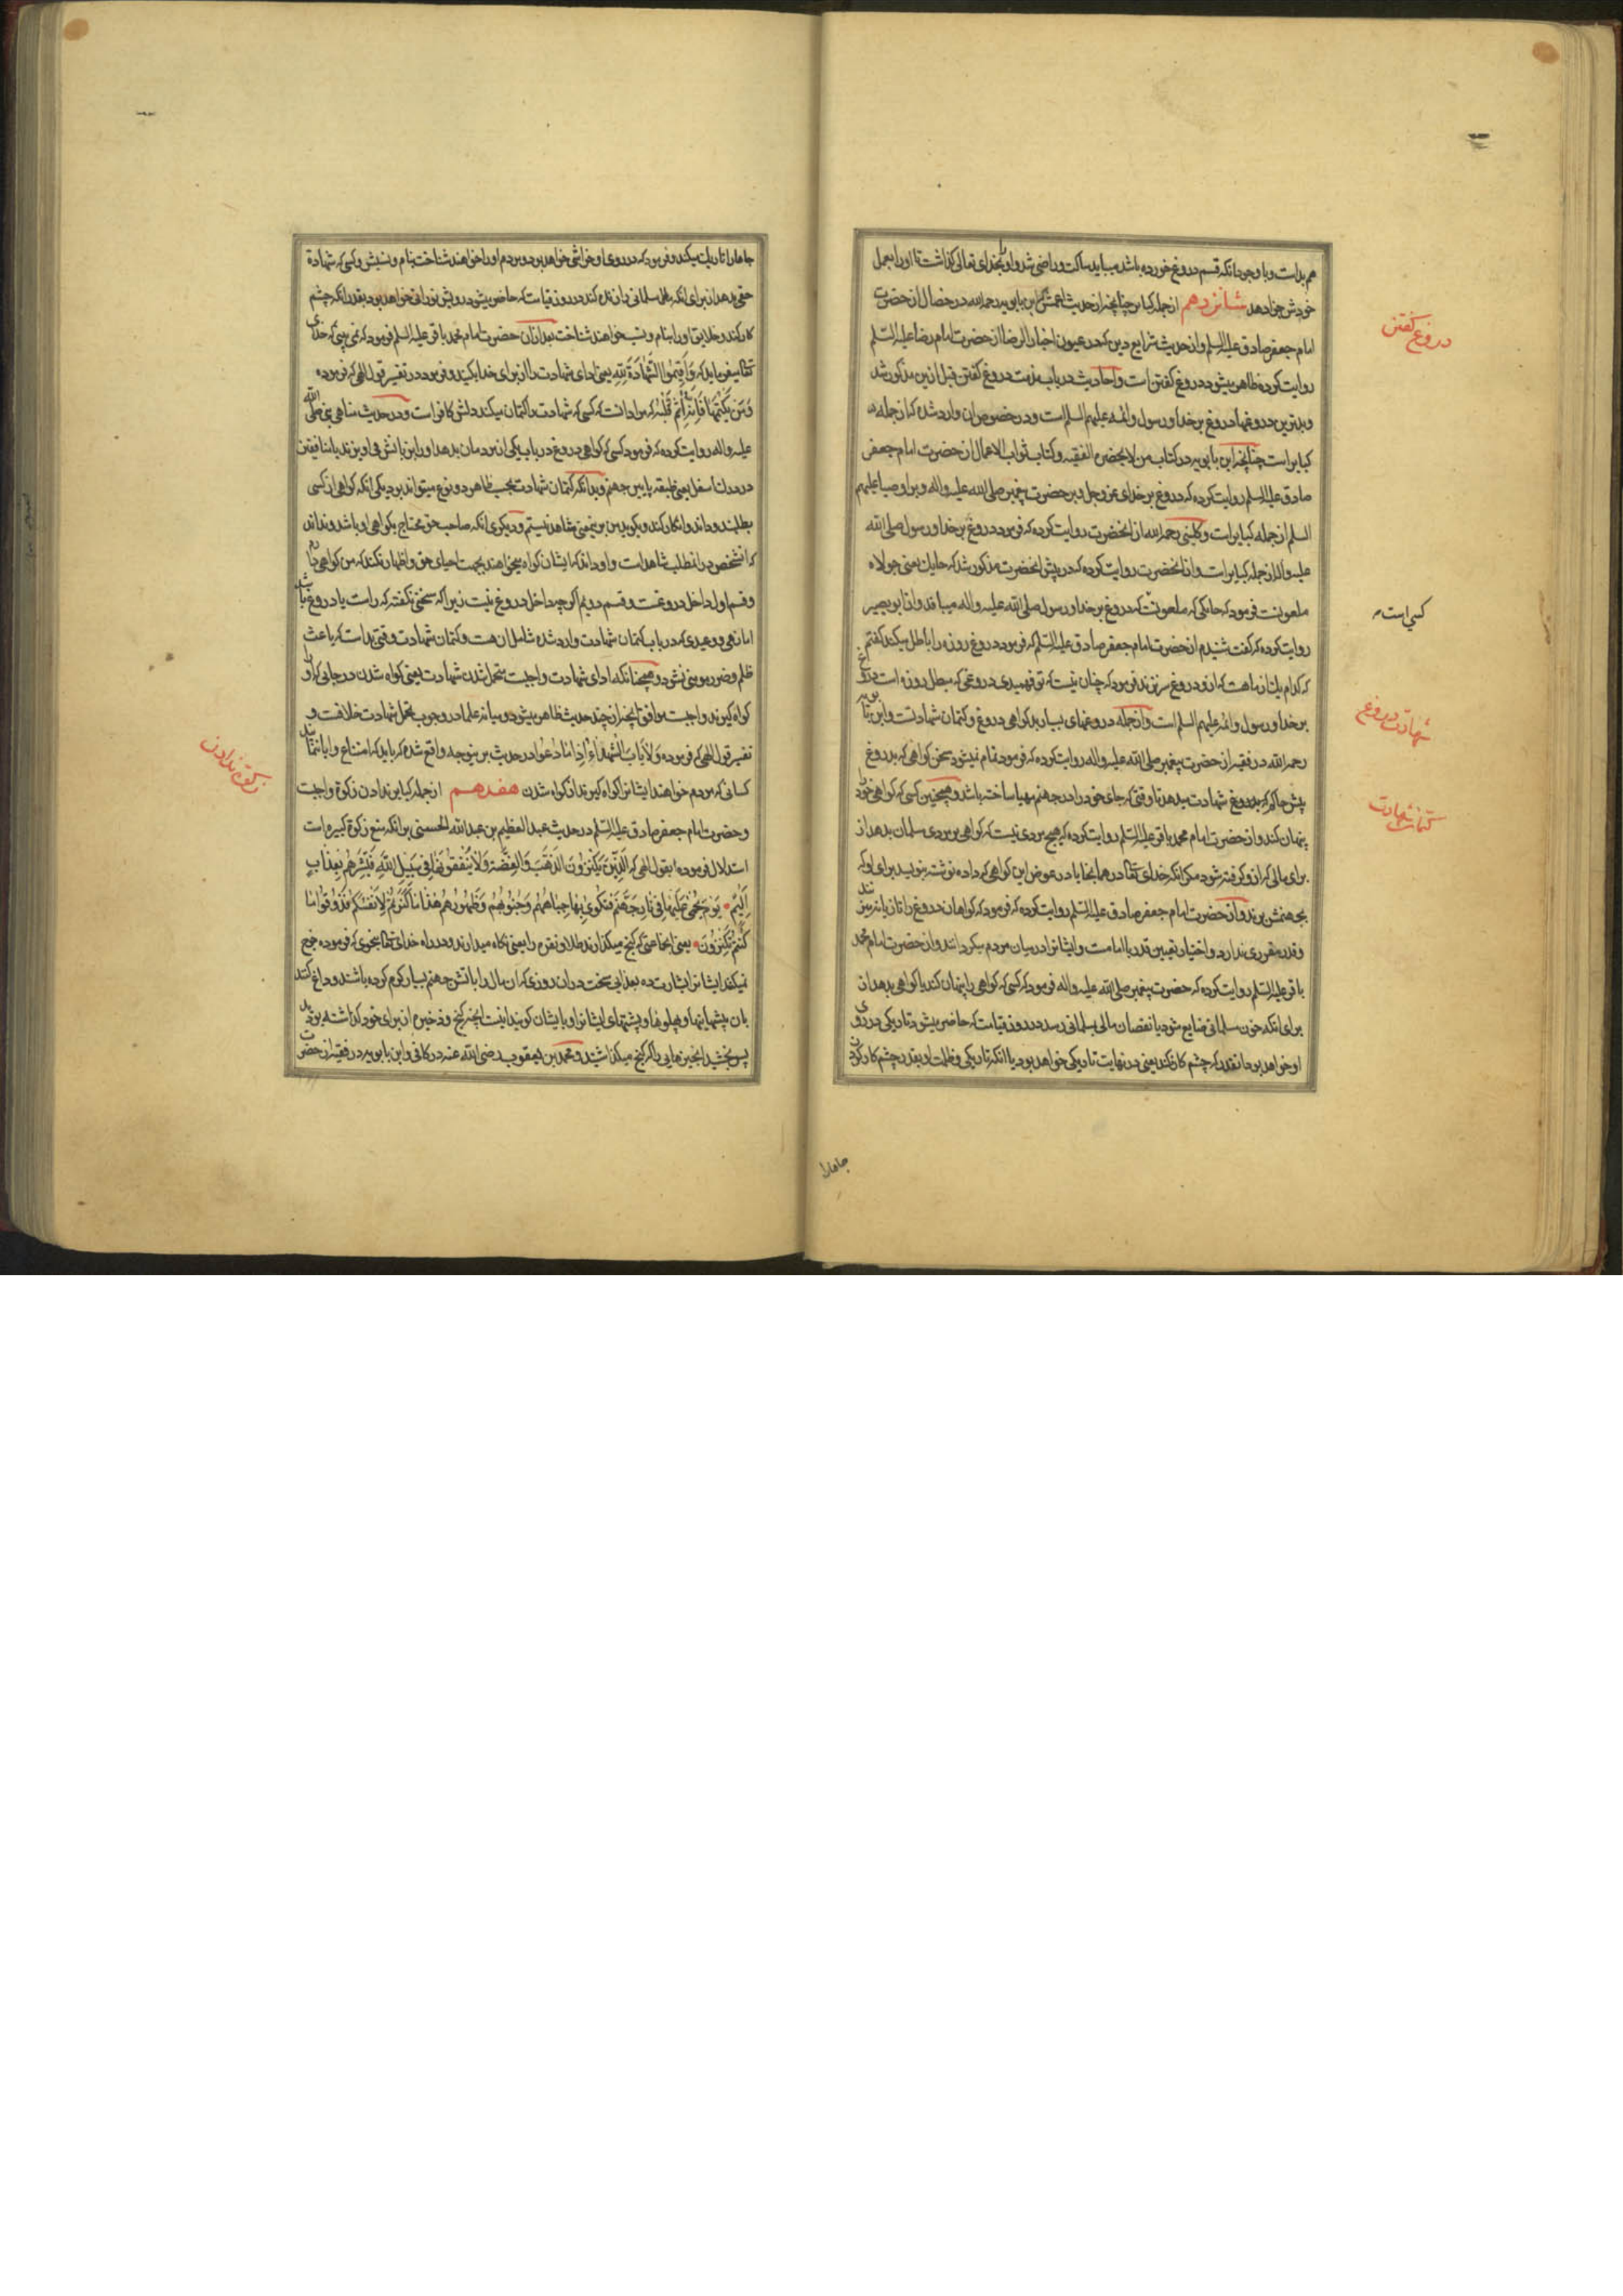 هم بد است و با وجود انکه قسم دروغ خورده باشد میباید ساکت و راضی شد و او را بخدای تعالی گذاشت تا او را بعمل
خودش جزا دهد شانزدهم از جمله کبایر چنانچه از حدیث اعمش که ابن بابویه رحمه الله در خصال از حضرت
امام جعفر صادق علیه السلم و از حدیث شرایع دین که در عیون اخبار الرضا از حضرت امام رضا علیه السلم
روایت کرده ظاهر میشود دروغ کفتن است و احادیث در باب مذمت دروغ کفتن قبل ازین مذکور شد
و بدترین دروغها دروغ بر خدا و رسول و ائمه علیهم السلم است و در خصوص ان وارد شده که از جمله
کبایر است چنانچه ابن بابویه در کتاب من لا یحضره الفقیه و کتاب ثواب الاعمال از حضرت امام جعفر
صادق علیه السلم روایت کرده که دروغ بر خدای عز وجل و بر حضرت پیغمبر صلی الله علیه و اله و بر اوصیا علیهم
السلم از جمله کبایر است و کلینی رحمه الله از انحضرت روایت کرده که فرمود دروغ بر خدا و رسول صلی الله
علیه و اله از جمله کبایر است و از انحضرت روایت کرده که در پیش انحضرت مذکور شد که حایک یعنی جولاه
ملعونست فرمود که حایکی که ملعونست کسی است که دروغ بر خدا و رسول صلی الله علیه و اله میبافد و از ابو بصیر
روایت کرده که کفت شنیدم از حضرت امام جعفر صادق علیه السلم که فرمود دروغ روزه را باطل میکند کفتم
که کدام یک از ماهست که ازو دروغ سر نزند فرمود که چنان نیست که تو فهمیدی دروغی که مبطل روزه است دروغ
بر خدا و رسول و ائمه علیهم السلم است و از جمله دروغهای بسیار بد کواهی دروغ و کتمان شهادتست و ابن بابویه
رحمه الله در فقیه از حضرت پیغمبر صلی الله علیه و اله روایت کرده که فرمود تمام نمیشود سخن کواهی که بدروغ
پیش حاکم بدروغ شهادت میدهد تا وقتی که جای خود را در جهنم مهیا ساخته باشد و همچنین کسی که کواهی خود را
پنهان کند و از حضرت امام محمد باقر علیه السلم روایت کرده که هیچ مردی نیست که کواهی بر مردی مسلمان بدهد از
برای مالی که ازو کرفته شود مکر انکه خدای تعالی در همانجا یا در عوض این کواهی که داده نوشته بنویسد برای او که
بجهنمش برند و از حضرت امام جعفر صادق علیه السلم روایت کرده که فرمود که کواهان دروغ را تازیانه میزنند
و قدر مقرری ندارد و اختیار تعیین قدر با امامست و ایشانرا در میان مردم میکردانند و از حضرت امام محمد
باقر علیه السلم روایت کرده که حضرت پیغمبر صلی الله علیه و اله فرمود که کسی که کواهی را پنهان کند یا کواهی بدهد از
برای انکه خون مسلمانی ضایع شود یا نقصان مالی بمسلمانی رسد در روز قیامت که حاضر میشود تاریکی در روی
او خواهد بود انقدر که چشم کار کند یعنی در نهایت تاریکی خواهد بود یا انکه تاریکی و ظلمات او بقدر چشم کار کردن
دروغ کفتن
کسی است که
شهادت دروغ
کتمان شهادت
جاها را
جاها را تاریک میکند و فرمود که در روی او خراشی خواهد بود و مردم او را خواهند شناخت بنام و نسبش و کسی که شهادة
حقی بدهد از برای انکه بان حق مسلمانی را زنده کند در روز قیامت که حاضر میشود رویش نورانی خواهد بود بقدر انکه چشم
کار کند و خلایق او را بنام و نسب خواهند شناخت بعد از ان حضرت امام محمد باقر علیه السلم فرمود که نمی بینی که خدای
تعالی میفرماید که وَاَقِیمُوا الشَّهَادَةَ لِلّهِ یعنی ادای شهادت را از برای خدا بکنید و فرمود در تفسیر قول الهی که فرموده
وَمَن یَکْتُمْهَا فَاِنَّهُ اٰثِمٌ قَلْبُهُ که مراد انست که کسی که شهادت را کتمان میکند دلش کافر است و در حدیث مناهی نبی صلی الله
علیه و اله روایت کرده که فرمود کسی که کواهی دروغ در باب یکی از مردمان بدهد او را بزبانش می اویزند با منافقین
در درک اسفل یعنی طبقه پایین جهنم و بدانکه کتمان شهادت بحسب ظاهر دو نوع میتواند بود یکی انکه کواهی از کسی
بطلبند و داند و انکار کند و بکوید من برین معنی شاهد نیستم و دیکری انکه صاحب حق محتاج بکواهی او باشد و نداند
که انشخص در انمطلب شاهد است و او داند که ایشان کواه میخواهند بجهت احیای حق و اظهار نکند که من کواهی دارم
و قسم اول داخل دروغست و قسم دویم اکرچه داخل دروغ نیست زیرا که سخنی نکفته که راست یا دروغ باشد
اما نهی و وعیدی که در باب کتمان شهادت وارد شده شامل ان هست و کتمان شهادت وقتی بد است که باعث
ظلم و ضرر مومنی نشود و همچنانکه ادای شهادت واجبست متحمل شدن شهادت یعنی کواه شدن در جایی که او را
کواه کیرند واجبست موافق انچه از چند حدیث ظاهر میشود و میانه علما در وجوب تحمل شهادت خلافست و
تفسیر قول الهی که فرموده وَلَا یَأبَ الشُّهَدَاءُ اِذَا مَا دُعُوا در حدیث برینوجه واقع شده که باید که امتناع و ابا ننمایند
کسانی که مردم خواهند ایشانرا کواه کیرند از کواه شدن هفدهم از جمله کبایر ندادن زکوة واجبست
و حضرت امام جعفر صادق علیه السلم در حدیث عبد العظیم بن عبد الله الحسنی برانکه منع زکوة کبیره است
استدلال فرموده بقول الهی که اَلَّذِینَ یَکْنِزُونَ الذَّهَبَ وَالْفِضَّةَ وَلَا یُنْفِقُونَهَا فِی سَبِیلِ اللّهِ فَبَشِّرْهُمْ بِعَذَابٍ
اَلِیمٍ یَوْمَ یُحْمَی عَلَیْهَا فِی نَارِ جَهَنَّمَ فَتُکْوَی بِهَا جِبَاهُهُمْ وَجُنُوبُهُمْ وَظُهُورُهُمْ هٰذَا مَا کَنَزْتُمْ لِاَنْفُسِکُمْ فَذُوقُوا مَا
کُنْتُمْ تَکْنِزُونَ یعنی انجماعتی که کنج میکنارند طلا و نقره را یعنی نکاه میدارند و در راه خدای تعالی بنحوی که فرموده خرج
نمیکنند ایشانرا بشارت ده بعذابی سخت در ان روزی که ان مال را باتش جهنم بسیار کرم کرده باشند و داغ کنند
بان پیشانیها و پهلوها و پشتهای ایشانرا و بایشان کویند اینست انچه کنج و ذخیره از برای خود کذاشته بودید
پس بچشید انچنان چیزهایی را که کنج میکذاشتید و محمد بن یعقوب رضی الله عنه در کافی و ابن بابویه در فقیه از حضرت
زکوة ندادن